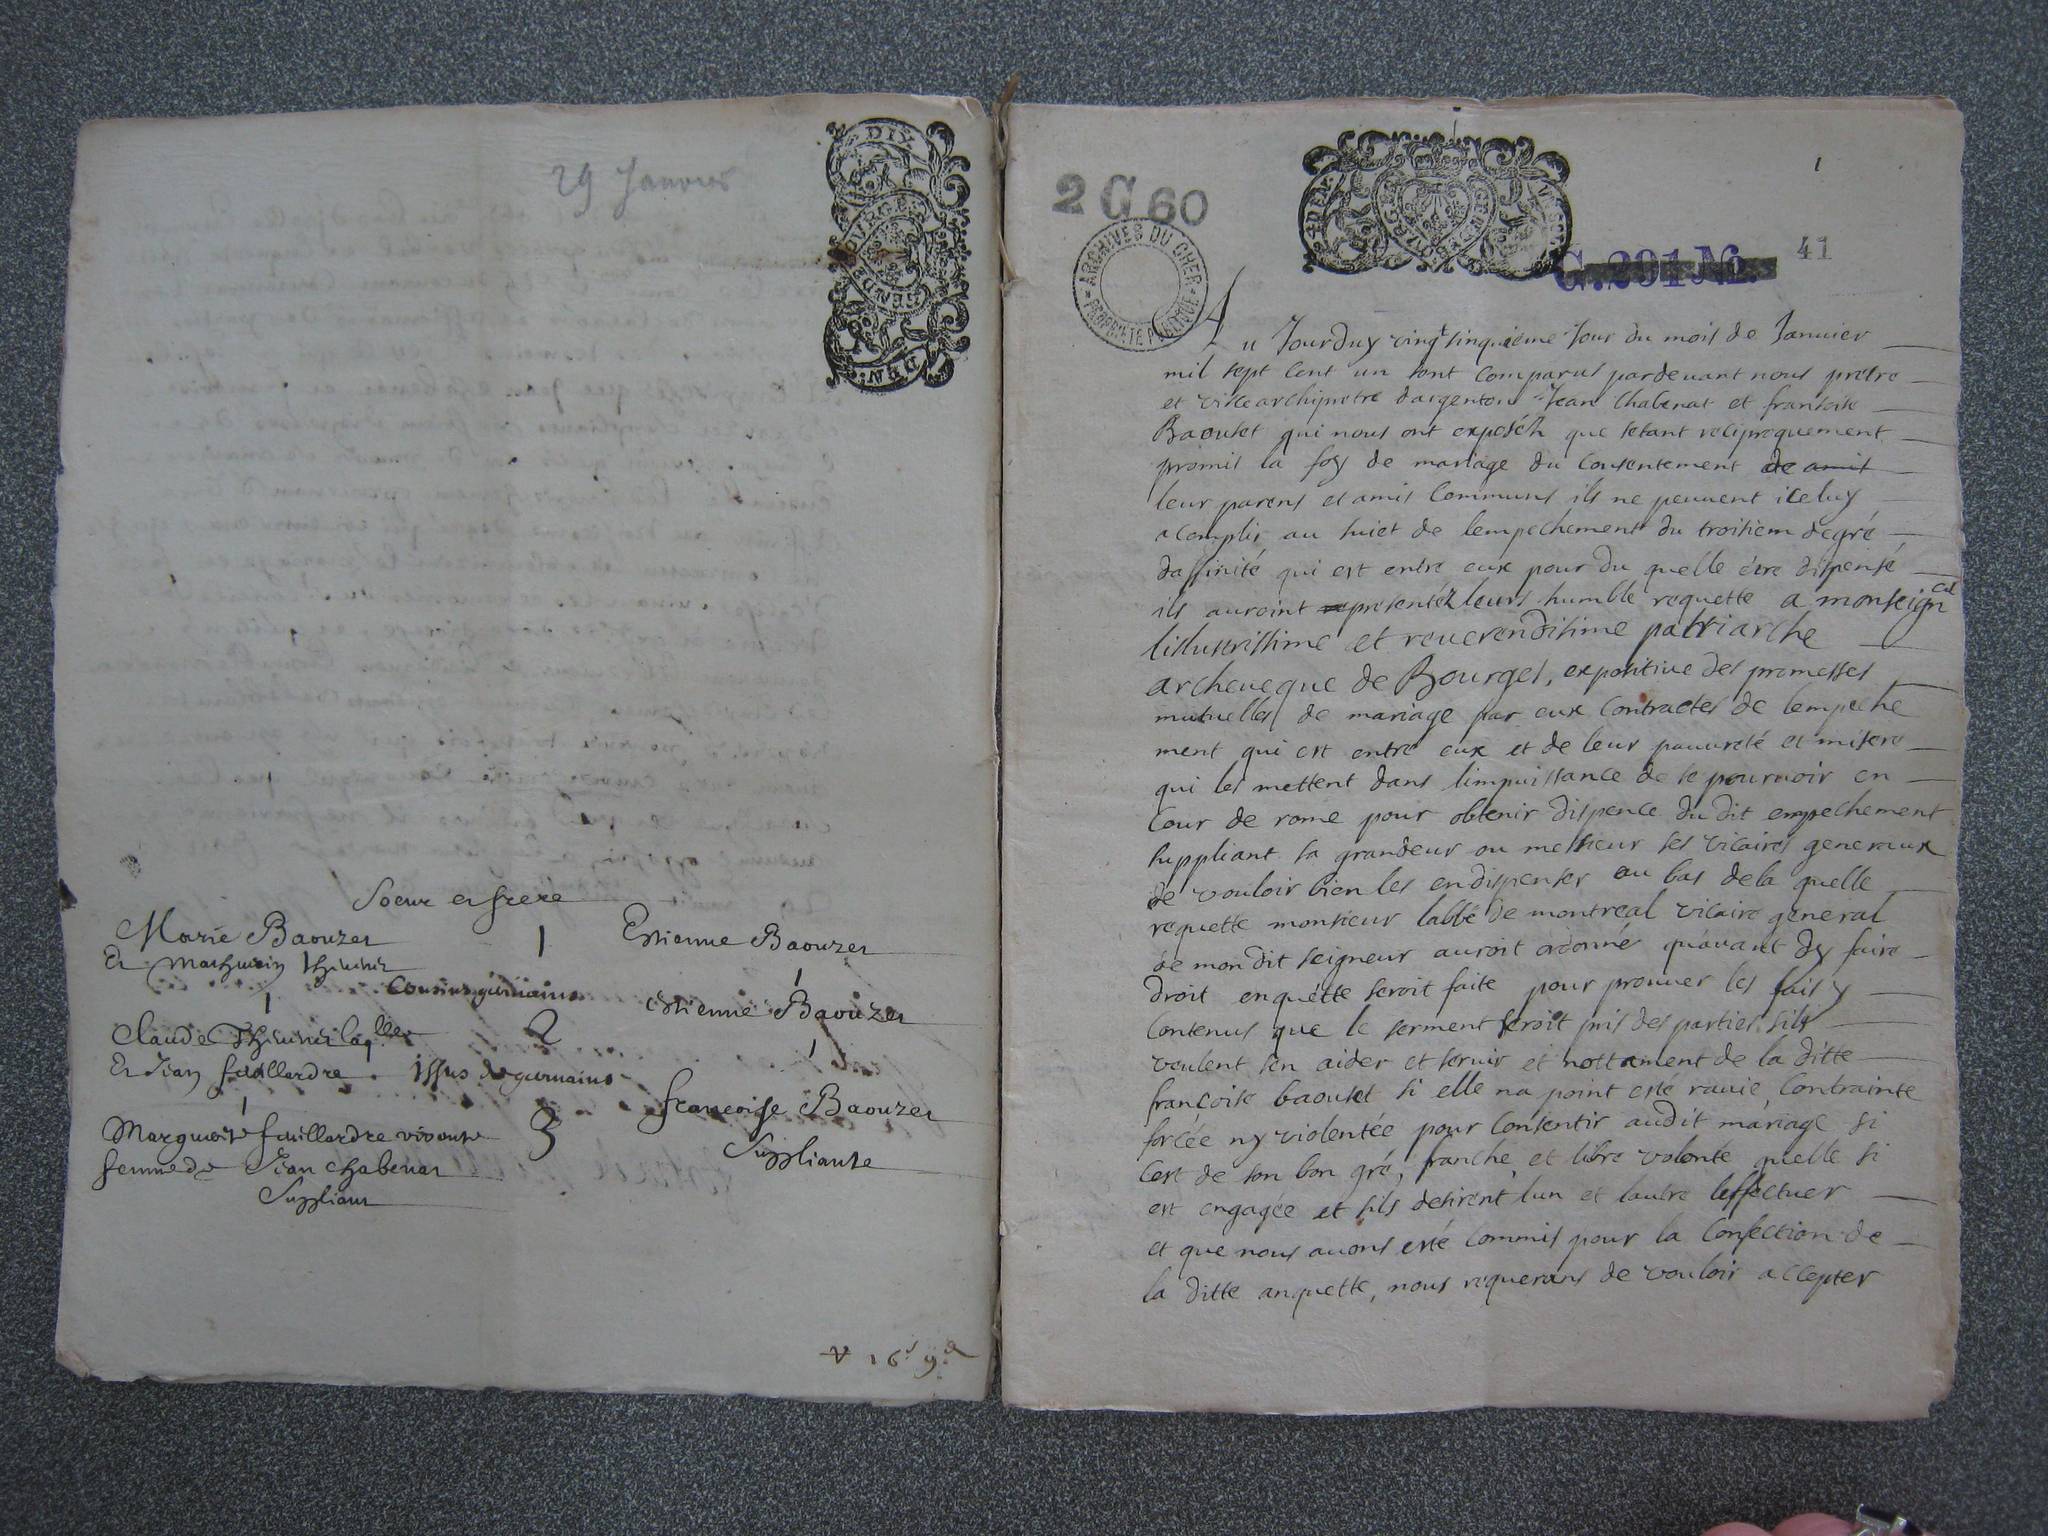 29 Janvier
DIX
Soeur et frere
Marie Baouzet 1 Estienne Baouzet
Et Mathurin 1
1 Cousins germains Estienne Baouzet
Claude 2
Et Jean feuillardre issus de germains 1
1 francoise Baouzet
Marguerite feuillardre vivante 3 Suppliante
femme de Jean Chabenat
Suppliant
16s 9d
2 G 60
ARCHIVES DU CHER
PROPRIETE PUBLIQUE
1
C.291 No.
41
Au Jourduy vingt sinquieme Jour du mois de Janvier
mil sept cent un sont comparus pardevant nous pretre
et vicearchipretre dargenton Jean Chabenat et fransoise
Baouset qui nous ont exposéz que setant reciproquement
promis la foy de mariage du consentement de amis
leur parens et amis communs ils ne peuvent iceluy
acomplir au suiet de lempechement du troisiem degré
daffinité qui est entre eux pour du quelle être dispensé
ils auroint presentéz leurs humble requette a monseigneur
lillustrissime et reverendisime patriarche
archeveque de Bourges, expositive des promesses
mutuelles de mariage par eux contractes de lempeche
ment qui est entre eux et de leur pauvreté et misere
qui les mettent dans limpuissance de se pourvoir en
cour de rome pour obtenir dispence du dit empechement
suppliant sa grandeur ou messieur ses vicaires generaux
de vouloir bien les en dispenser au bas de la quelle
requette monsieur labbé de montreal vicaire general
de mon dit seigneur auroit ordonné qu'avant dy faire
droit enquétte seroit faite pour prouver les fais y
contenus que le serment seroit pris des parties sils
veulent sen aider et servir et nottament de la ditte
françoise baouset si elle na point esté ravie, contrainte
forcée ny violentée pour consentir audit mariage si
cest de son bon gré, franche et libre volonte quelle si
est engagée et sils desirent lun et lautre leffectuer
et que nous avons esté commis pour la confection de
la ditte anquette, nous requerans de vouloir accepter